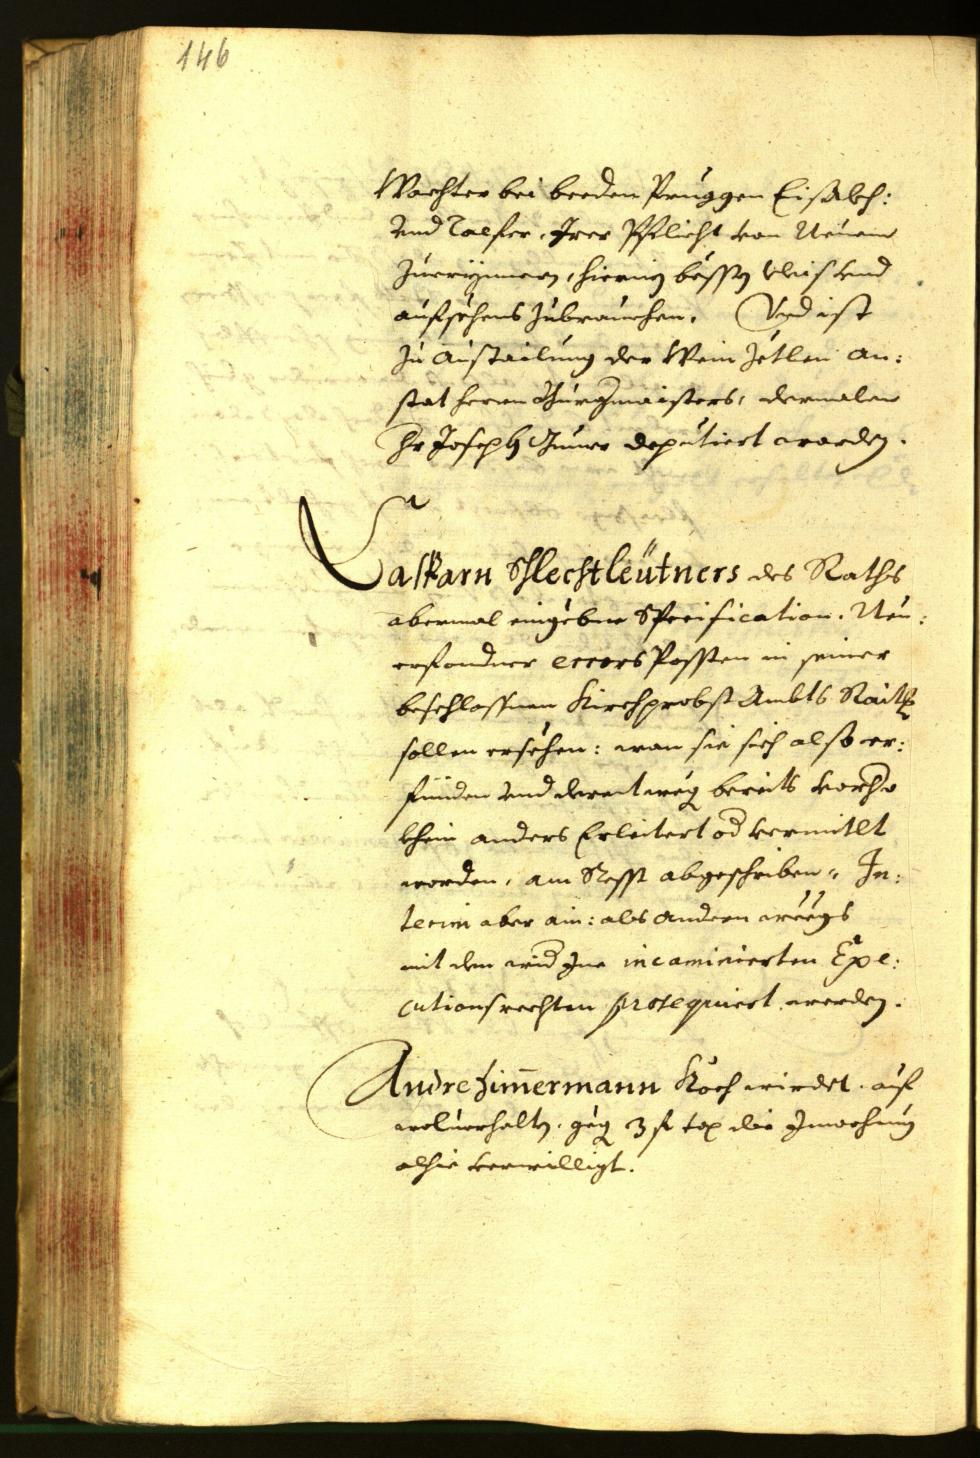 146
Wachter bei beeden Pruggen Eisakh:
und Talfer, Irer Pflicht von Neuem
zuerinnern, hierinn bessern vleis und
aufsehens zubrauchen. Und ist
zu austailung der Wein Zetlen an:
stat herrn Burgmaisters, dermalen
Hr Joseph Gumer deputiert worden.
Casparn Schlechtleütners des Raths
abermal eingebne Specification, Neu:
erfondner errors Possten in seiner
beschlossnen Kirchprobst Ambts Raitg
sollen ersehen: wan sie sich also er:
finden und derentweg bereits vorhero
khein anders Erleitert od vermitlt
worden, am Resst abgeschriben, In:
terim aber ain: als andern weegs
mit den wid Ine incaminierten Exe:
cutionsrechten prosequiert werden.
Andre Zimmermann Koch wirdet auf
wolverhalten, geg 3 f tax die Inwohnung
alhie verwilligt.